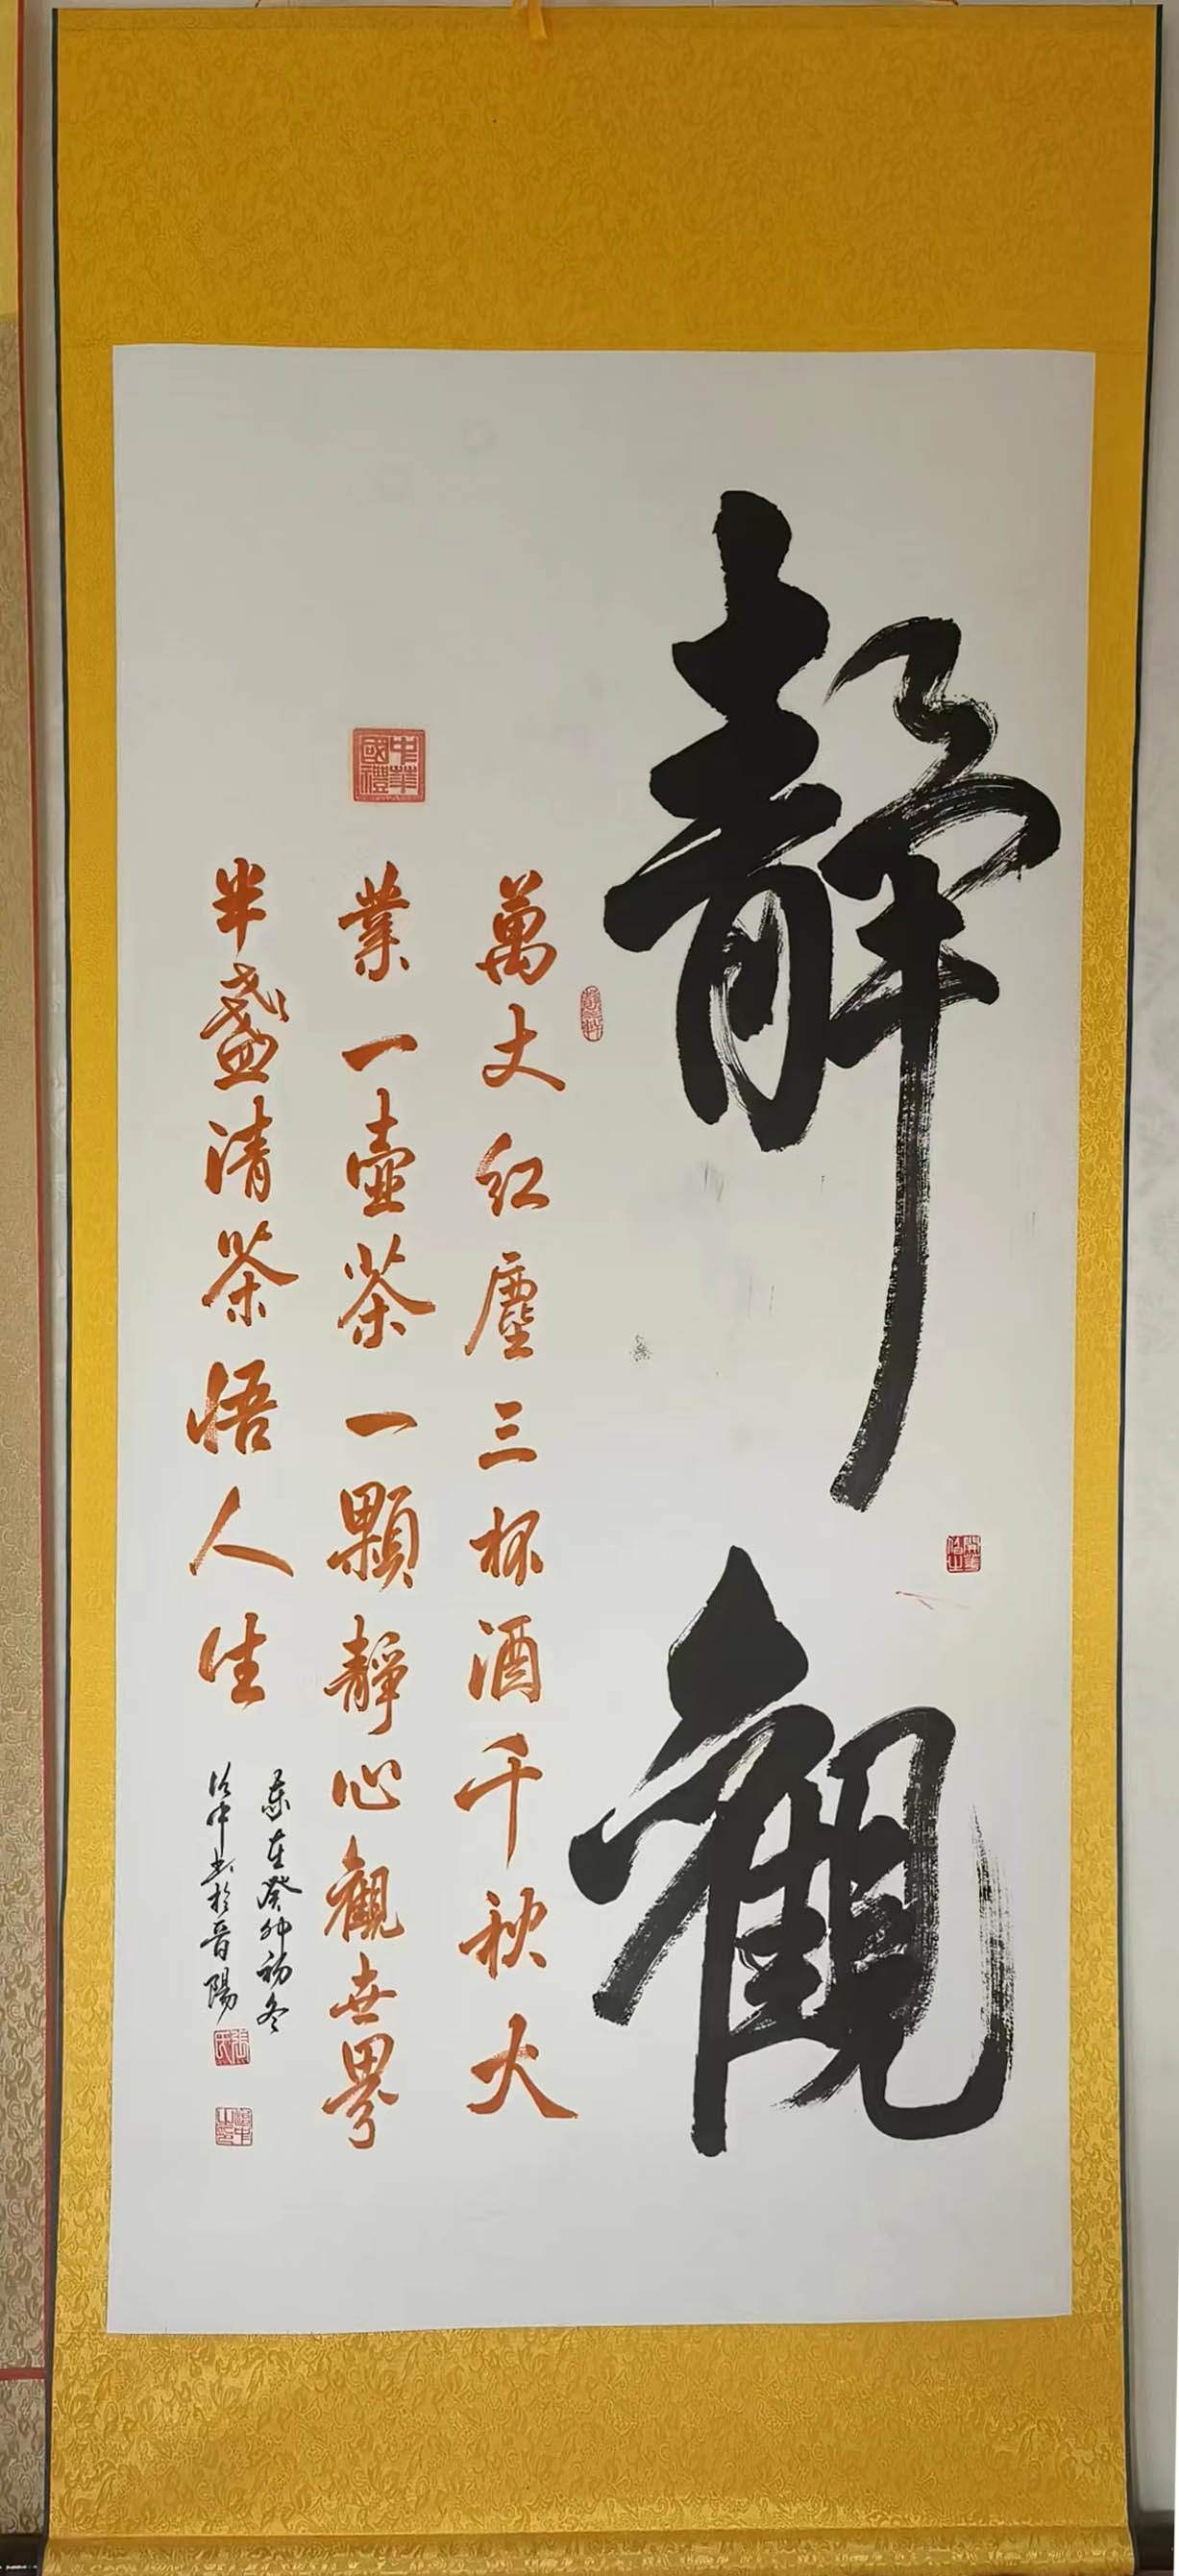 靜觀
萬丈红塵三杯酒千秋大
業一壺茶一顆靜心觀世界
半盞清茶悟人生
癸卯初冬
中書於晋陽
中華國禮